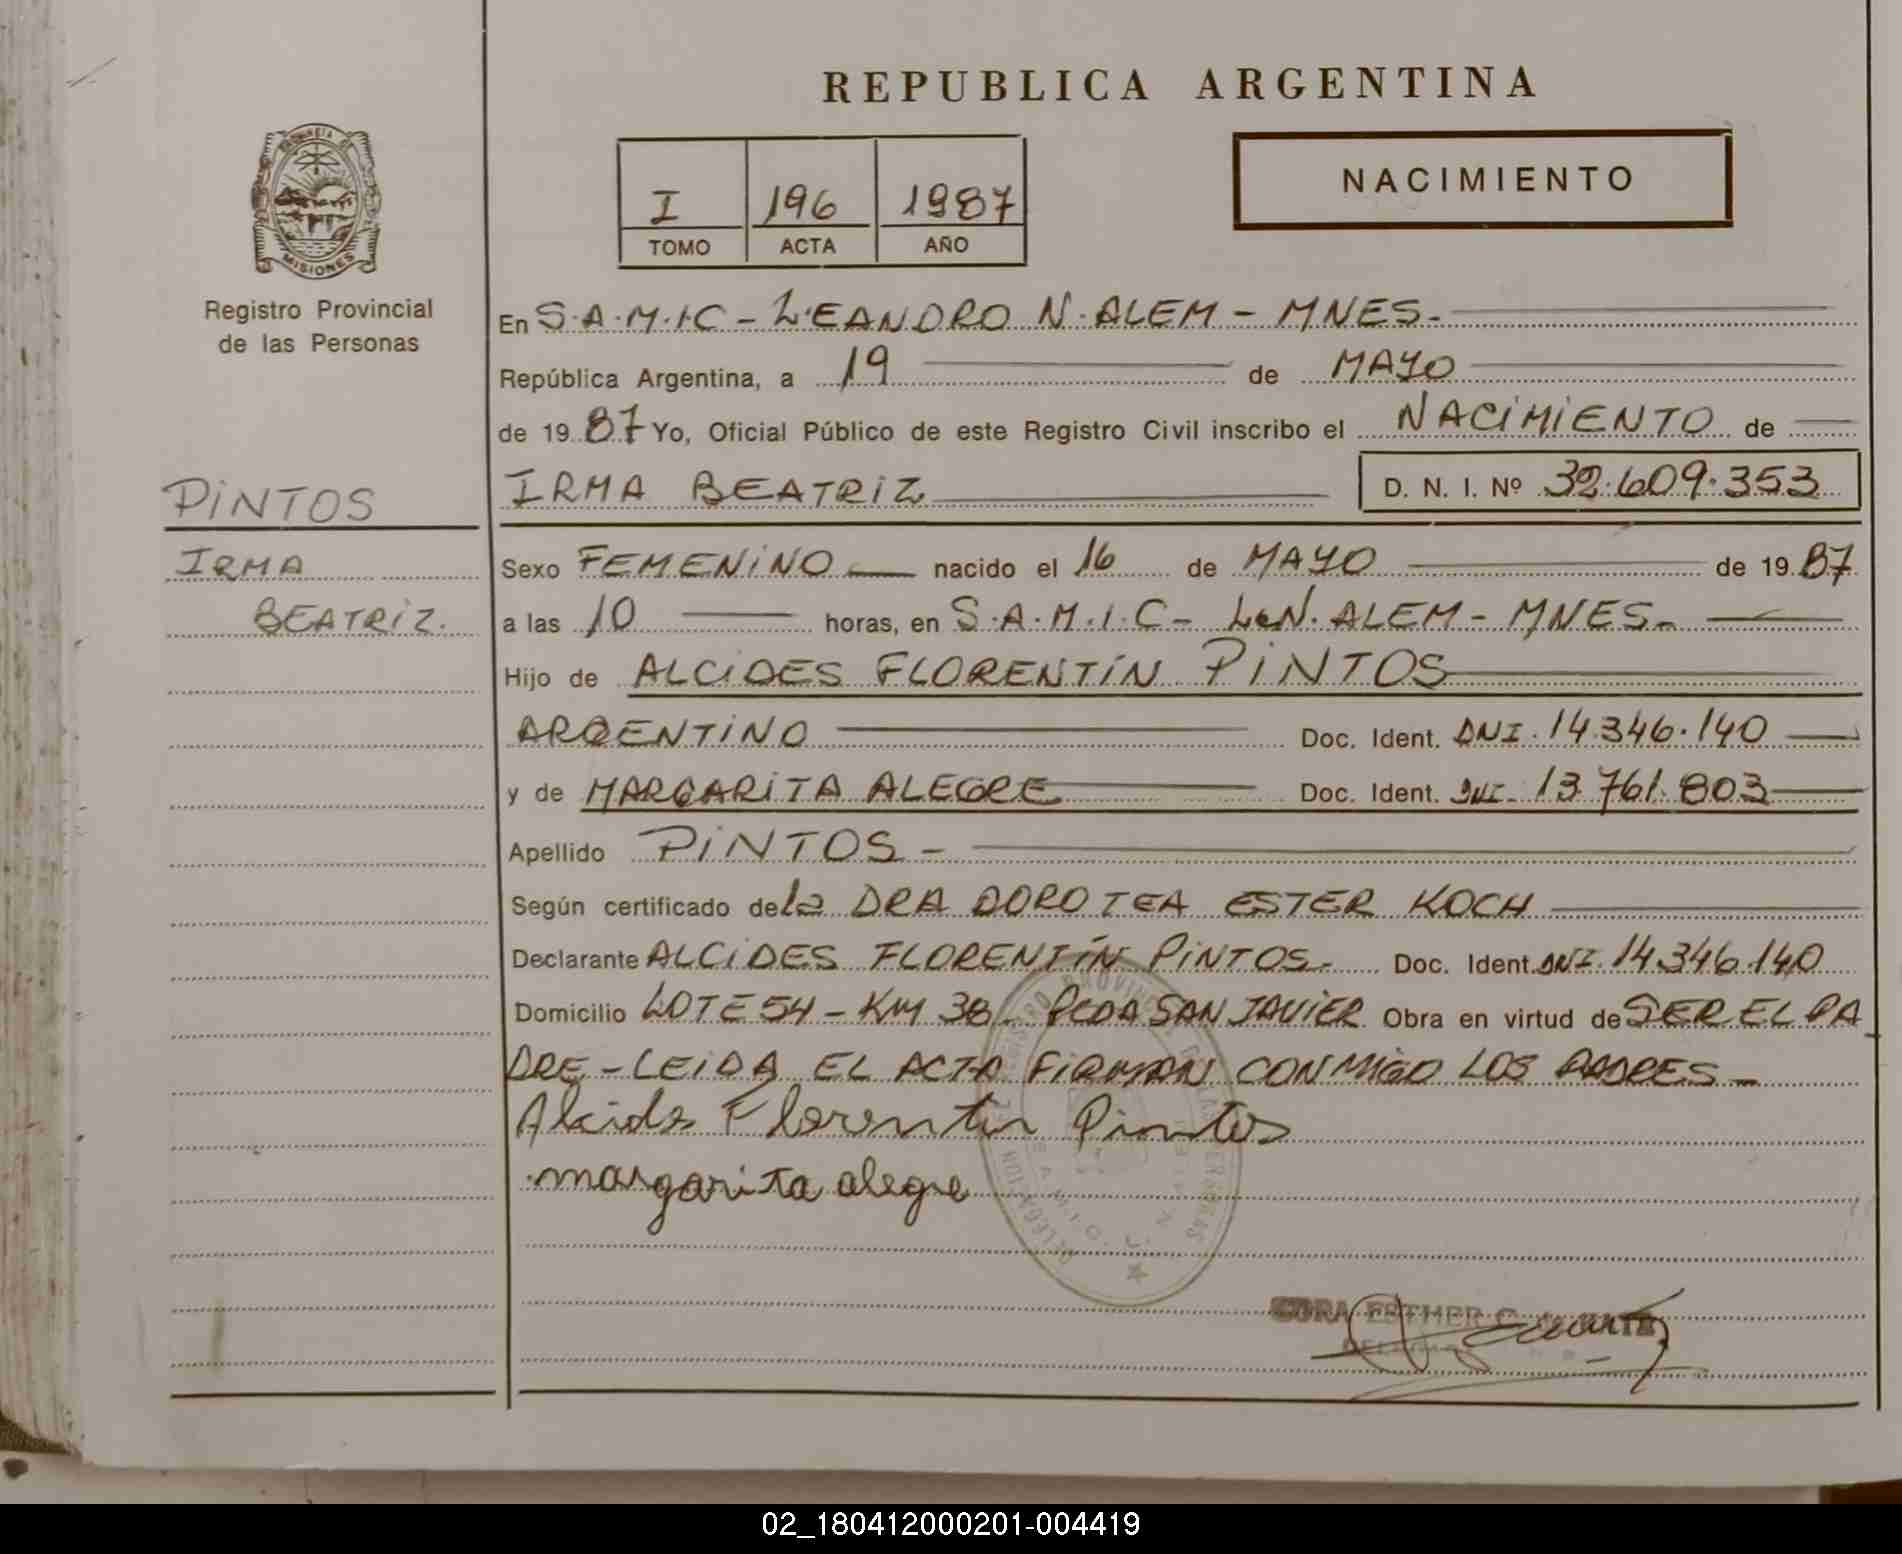 REPUBLICA ARGENTINA
PROVINCIA DE
MISIONES
Registro Provincial
de las Personas
I 196 1987
TOMO ACTA AÑO
NACIMIENTO
En S.A.M.I.C - LEANDRO N. ALEM - MNES.
República Argentina, a 19 de MAYO
de 1987 Yo, Oficial Público de este Registro Civil inscribo el NACIMIENTO de
IRMA BEATRIZ D. N. I. Nº 32.609.353
PINTOS
IRMA
BEATRIZ.
Sexo FEMENINO nacido el 16 de MAYO de 1987
a las 10 horas, en S.A.M.I.C - L.N. ALEM - MNES.
Hijo de ALCIDES FLORENTÍN PINTOS
ARGENTINO Doc. Ident. DNI. 14.346.140
y de MARGARITA ALEGRE Doc. Ident. DNI. 13.761.803
Apellido PINTOS -
Según certificado de la DRA DOROTEA ESTER KOCH
Declarante ALCIDES FLORENTÍN PINTOS. Doc. Ident. DNI. 14.346.140
Domicilio LOTE 54 - KM 38 - PCDA SAN JAVIER Obra en virtud de SER EL PA
DRE - LEIDA EL ACTA FIRMAN CONMIGO LOS PADRES -
Alcides Florentin Pintos
margarita alegre
ESTHER
02_180412000201-004419